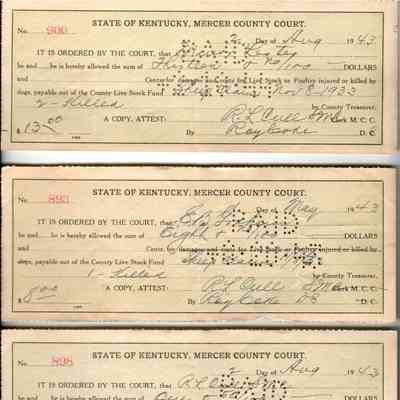 STATE OF KENTUCKY, MERCER COUNTY COURT.
No. 900 2 Day of Aug 1943
IT IS ORDERED BY THE COURT, that
and be is hereby allowed the sum of Thirteen & no/100 DOLLARS
and Cents for damages and costs for Live Stock or Poultry injured or killed by
dogs, payable out of the County Live Stock Fund Sheep Claim Nov 8-1933
2 - Killed by County Treasurer.
$13.00 A COPY, ATTEST: R L Cull Clerk M. C. C.
By Ray Coke D. C.
STATE OF KENTUCKY, MERCER COUNTY COURT.
No. 893 Day of May 1943
IT IS ORDERED BY THE COURT, that E B
and be is hereby allowed the sum of Eight & no/100 DOLLARS
and Cents, for damages and costs for Live Stock or Poultry injured or killed by
dogs, payable out of the County Live Stock Fund Sheep
1 - Killed by County Treasurer.
8.00 A COPY, ATTEST: R L Cull Clerk M. C. C.
By Ray Coke D. C.
STATE OF KENTUCKY, MERCER COUNTY COURT.
No. 898 2 Day of Aug 1943
IT IS ORDERED BY THE COURT, that R L Cull
and be is hereby allowed the sum of DOLLARS